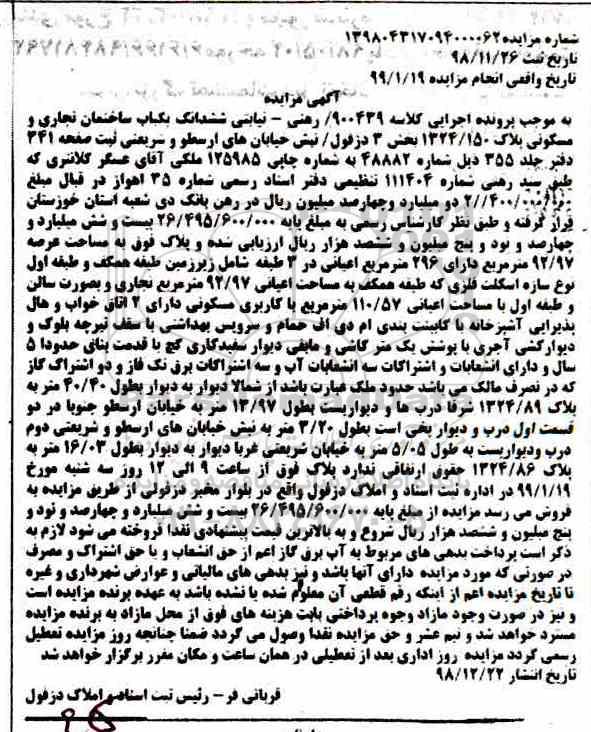 شماره مزایده: ۱۳۹۸۰۴۳۱۷۰۹۴۰۰۰۰۶۲
تاریخ ثبت ۹۸/۱۱/۲۶
تاریخ واقعی انجام مزایده ۹۹/۱/۱۹
آگهی مزایده
به موجب پرونده اجرایی کلاسه ۹۰۰۴۳۹/ رهنی – نیابتی ششدانگ یکباب ساختمان تجاری و
مسکونی پلاک ۱۳۲۴/۱۵۰ بخش ۳ دزفول/ نبش خیابان های ارسطو و شریعتی ثبت صفحه ۳۴۱
دفتر جلد ۳۵۵ ذیل شماره ۴۸۸۸۲ به شماره چاپی ۱۲۵۹۸۵ ملکی آقای عسگر کلانتری که
طبق سند رهنی شماره ۱۱۱۴۰۴ تنظیمی دفتر اسناد رسمی شماره ۳۵ اهواز در قبال مبلغ
۲//۴۰۰/۰۰۰/۰۰۰ دو میلیارد وچهارصد میلیون ریال در رهن بانک دی شعبه استان خوزستان
قرار گرفته و طبق نظر کارشناس رسمی به مبلغ پایه ۲۶/۴۹۵/۶۰۰/۰۰۰ بیست و شش میلیارد و
چهارصد و نود و پنج میلیون و ششصد هزار ریال ارزیابی شده و پلاک فوق به مساحت عرصه
۹۲/۹۷ مترمربع دارای ۲۹۶ مترمربع اعیانی در ۳ طبقه شامل زیرزمین طبقه همکف و طبقه اول
نوع سازه اسکلت فلزی که طبقه همکف به مساحت اعیانی ۹۲/۹۷ مترمربع تجاری و بصورت سالن
و طبقه اول با مساحت اعیانی ۱۱۰/۵۷ مترمربع با کاربری مسکونی دارای ۲ اتاق خواب و هال
پذیرایی آشپزخانه با کابینت بندی ام دی اف حمام و سرویس بهداشتی با سقف تیرچه بلوک و
دیوارکشی آجری با پوشش یک متر کاشی و مابقی دیوار سفیدکاری گچ با قدمت بنای حدودا ۵
سال و دارای انشعابات و اشتراکات سه انشعابات آب و سه اشتراکات برق تک فاز و دو اشتراک گاز
که در تصرف مالک می باشد حدود ملک عبارت باشد از شمالا دیوار به دیوار بطول ۴۰/۴۰ متر به
پلاک ۱۳۲۴/۸۹ شرقا درب ها و دیواریست بطول ۱۳/۹۷ متر به خیابان ارسطو جنوبا در دو
قسمت اول درب و دیوار پخی است بطول ۳/۲۰ متر به نبش خیابان های ارسطو و شریعتی دوم
درب ودیواریست به طول ۵/۰۵ متر به خیابان شریعتی غربا دیوار به دیوار بطول ۱۶/۰۳ متر به
پلاک ۱۳۲۴/۸۶ حقوق ارتفاقی ندارد پلاک فوق از ساعت ۹ الی ۱۲ روز سه شنبه مورخ
۹۹/۱/۱۹ در اداره ثبت اسناد و املاک دزفول واقع در بلوار مخبر دزفولی از طریق مزایده به
فروش می رسد مزایده از مبلغ پایه ۲۶/۴۹۵/۶۰۰/۰۰۰ بیست و شش میلیارد و چهارصد و نود و
پنج میلیون و ششصد هزار ریال شروع و به بالاترین قیمت پیشنهادی نقدا فروخته می شود لازم به
ذکر است پرداخت بدهی های مربوط به آب برق گاز اعم از حق انشعاب و یا حق اشتراک و مصرف
در صورتی که مورد مزایده دارای آنها باشد و نیز بدهی های مالیاتی و عوارض شهرداری و غیره
تا تاریخ مزایده اعم از اینکه رقم قطعی آن معلوم شده یا نشده باشد به عهده برنده مزایده است
و نیز در صورت وجود مازاد وجوه پرداختی بابت هزینه های فوق از محل مازاد به برنده مزایده
مسترد خواهد شد و نیم عشر و حق مزایده نقدا وصول می گردد ضمنا چنانچه روز مزایده تعطیل
رسمی گردد مزایده روز اداری بعد از تعطیلی در همان ساعت و مکان مقرر برگزار خواهد شد
تاریخ انتشار ۹۸/۱۲/۲۲
قربانی فر – رئیس ثبت اسناد و املاک دزفول